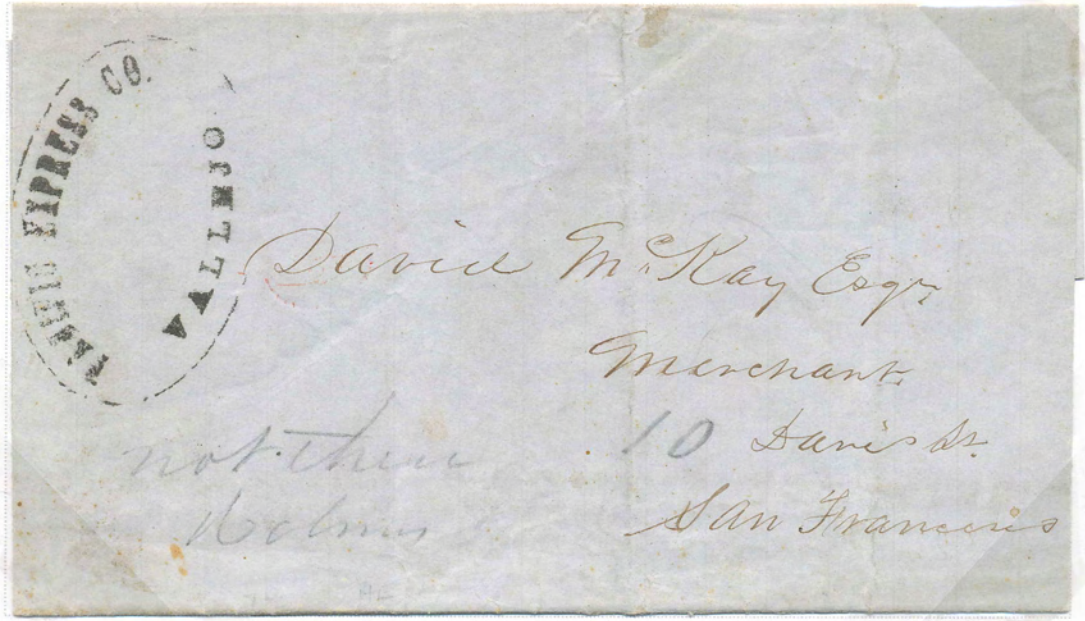 PACIFIC EXPRESS CO.
VALLEJO
David McKay Esqr
Merchant
10 Davis St.
San Francisco
not there